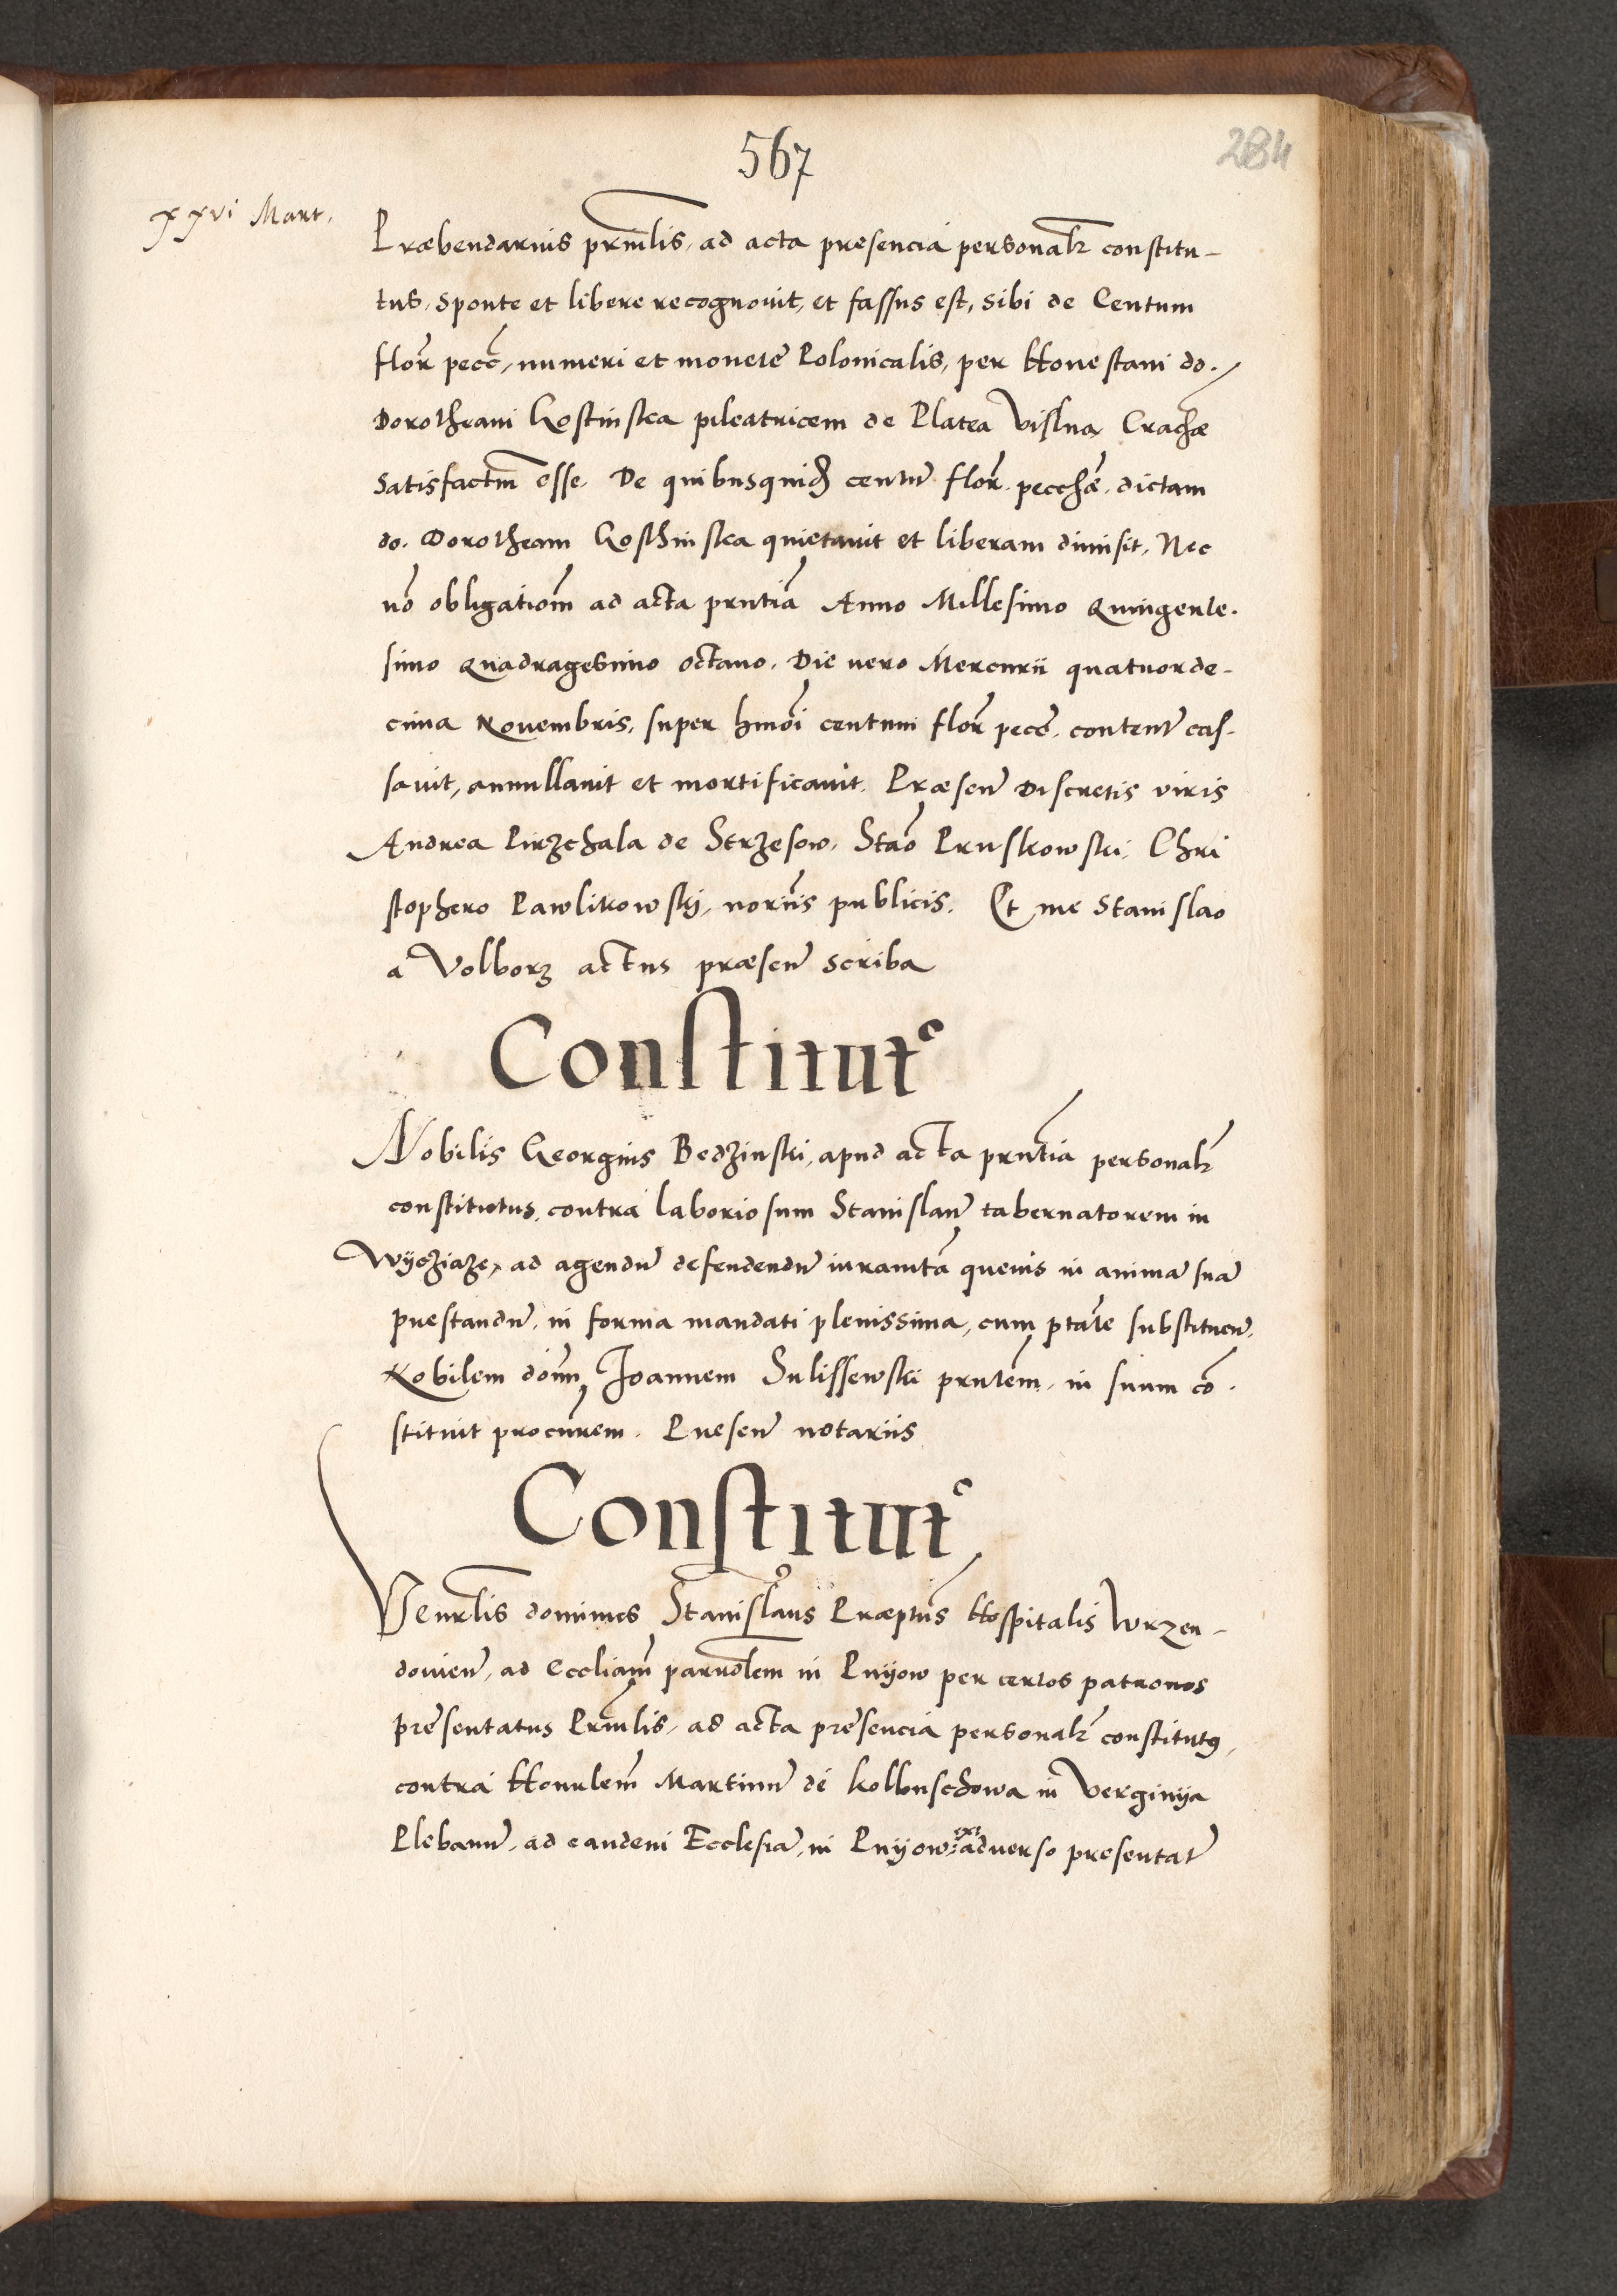 567
284
xxvi Mart.
Præbendarius prñlis, ad acta presencia personalr constitu-
tus, sponte et libere recognouit, et fassus est, sibi de Centum
florˉ pecc, numeri et monete Polonicalis, per Honestam do.
Dorotheam Gostinska pileatricem de Platea Vislna Crachæ
satisfactm̄ esse. De quibusquid centū florˉ pecchæ. dictam
do. Dorotheam Gosthinska quietauit et liberam dimisit, Nec
nō obligatiom̄ ad acta prntiā Anno Millesimo Quingente-
simo Quadragesimo octauo. Die uero Mercurii quatuorde-
cima Nouembris, super hmōi centum florˉ pecc. contentˉ cas-
sauit, annullauit et mortificauit. Præsenˉ Discretis viris
Andrea Pirzchala de Strzesow. Stāo Pruskowski. Chri
stophero Pawlikowskj, noriis publicis. Et me Stanislao
a Volborz actus præsenˉ scriba
Constitutᵒ
Nobilis Georgius Bedzinski, apud acta prntia personalr
constitutus, contra laboriosum Stanislaū tabernatorem in
Wyczjaze, ad agendū defendendū iuramtā queuis in animā suā
prestandū, in forma mandati plenissima, cum ptāte substituenˉ.
Nobilem dōm̄ Joannem Sulissewski prntem̄, in suum cō-
stituit procurem. Presenˉ notariis
Constitutᵒ
Venrlis dominus Stanislaus Præptus Hospitalis Wrzen-
douienˉ, ad Eccliam̄ parrōlem in Pnijow per certos patronos
presentatus Prñlis, ad acta presencia personalr constitutꝰ,
contra Honrlem̄ Martinū de Kolbuschowa in Verginija
Plebanū, ad eandem Ecclesiā, in Pnijow ex aduerso presentatˉ